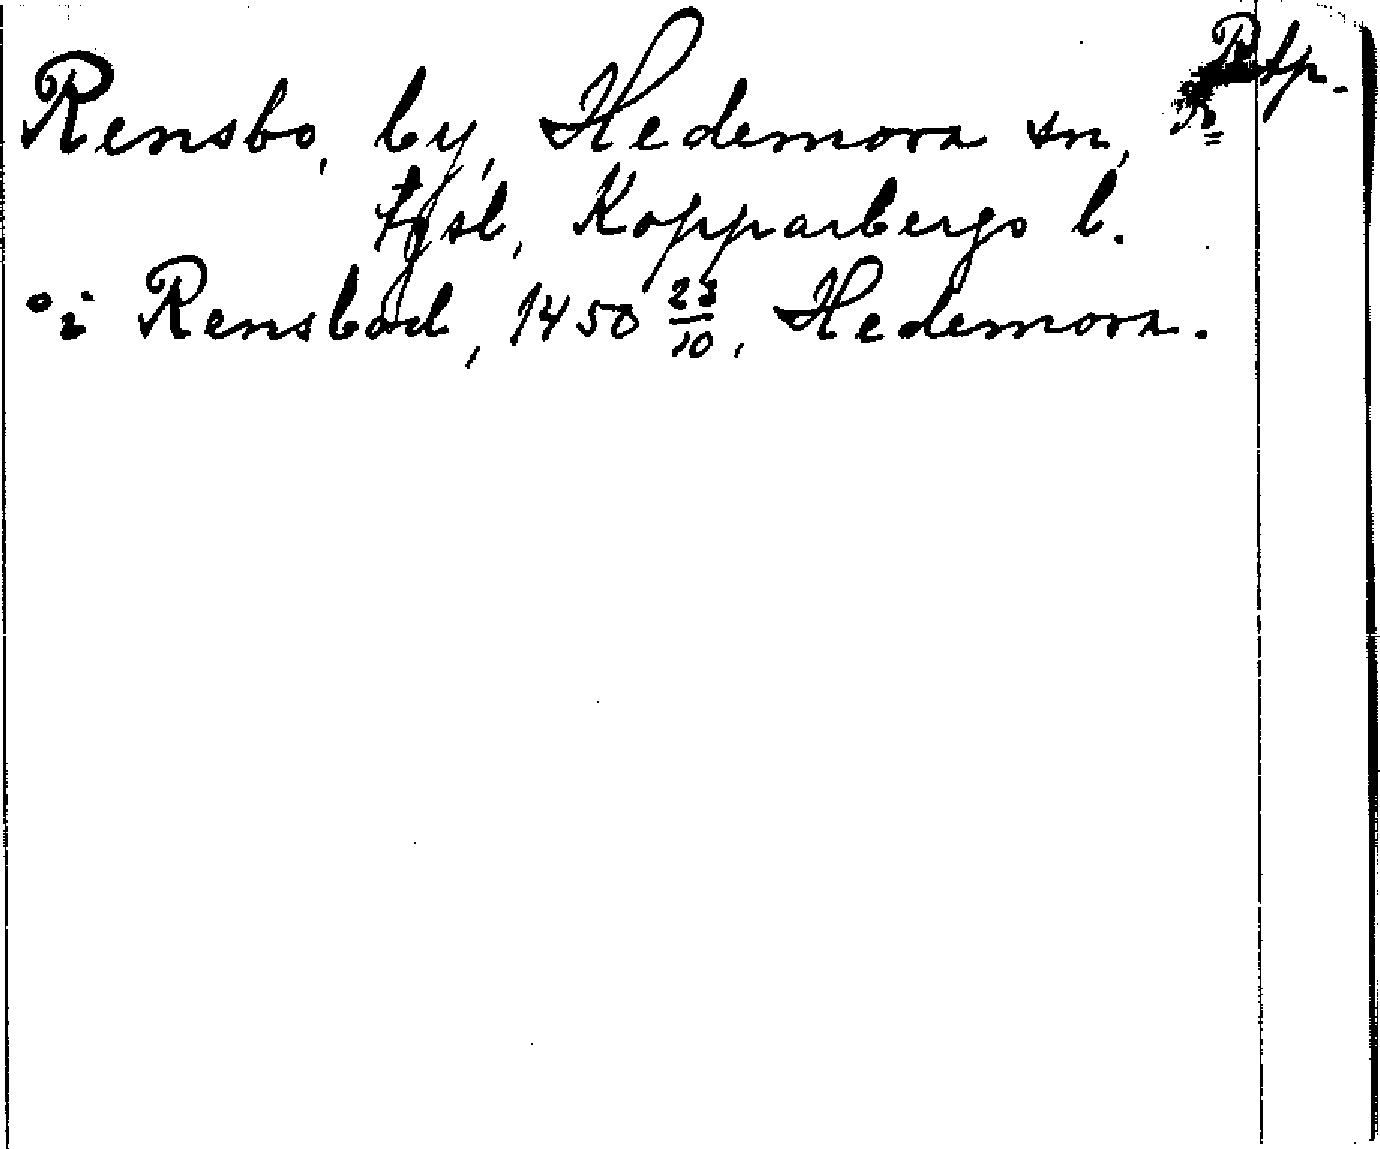 Rensbo, by, Hedemora sn,
tgsl, Kopparbergs l.
°i Rensbod, 1450 23/10, Hedemora.